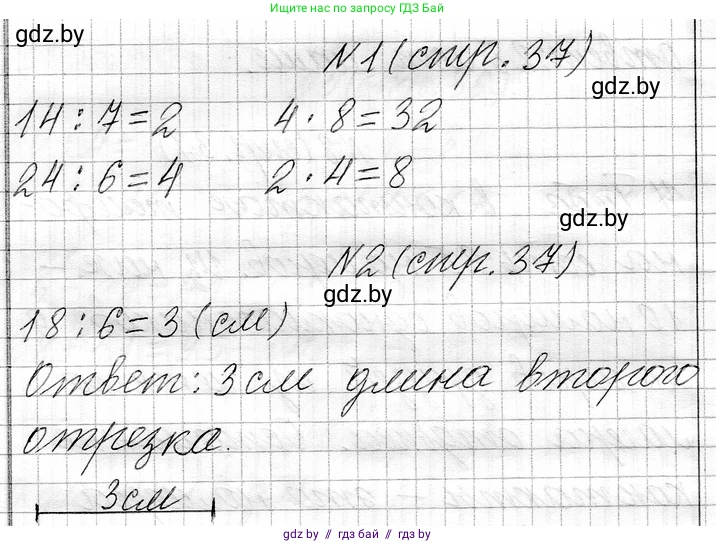 Ищите нас по запросу ГДЗ Бай
gdz.by
№1 (стр. 37)
gdz.by
14 : 7 = 2 4 · 8 = 32
24 : 6 = 4 2 · 4 = 8
gdz.by
№2 (стр. 37)
gdz.by
18 : 6 = 3 (см)
Ответ: 3 см длина второго
отрезка.
3 см
gdz.by // гдз бай // gdz.by